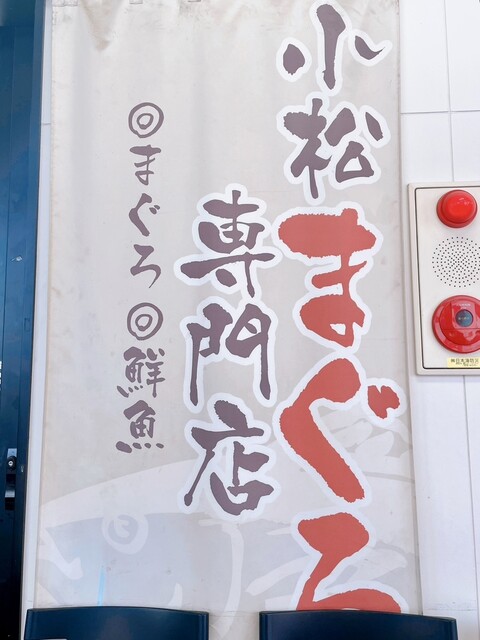 小松まぐろ
専門店
◎まぐろ◎鮮魚